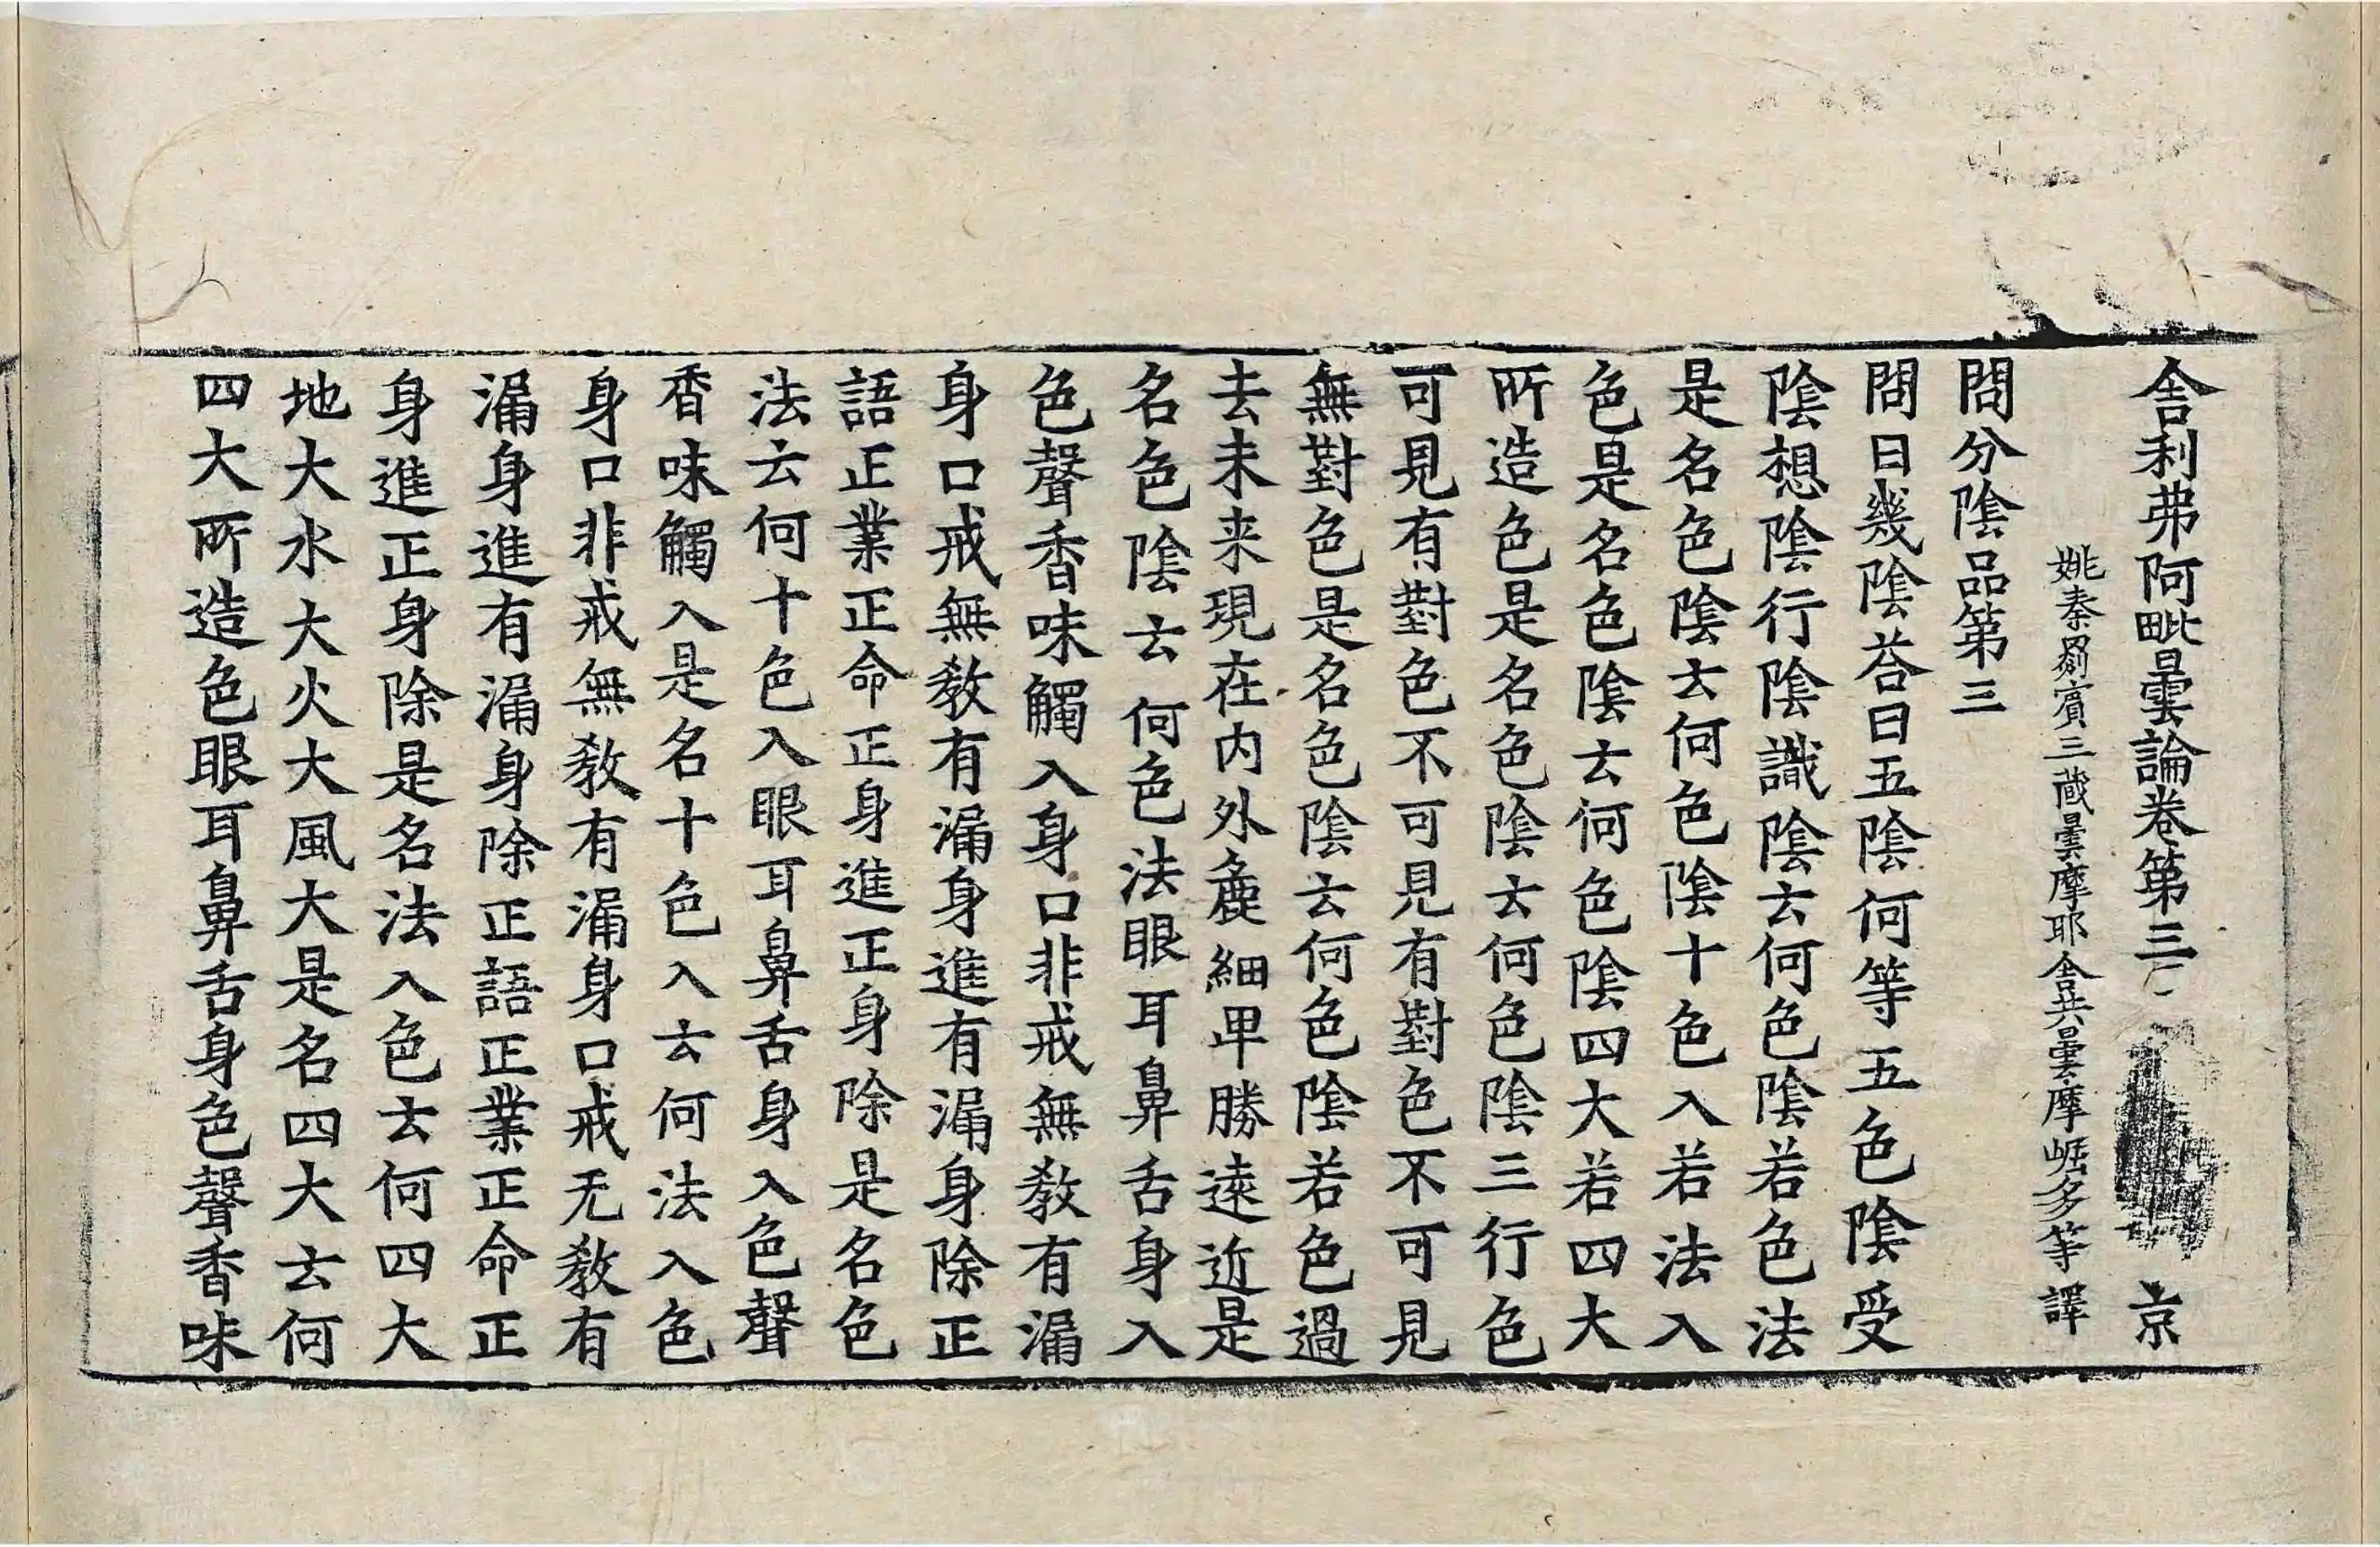 舎利弗阿毗曇論卷第三 京
姚秦罽賓三藏曇摩耶舎共曇摩崛多等譯
問分陰品第三
問曰幾陰荅曰五陰何等五色陰受
陰想陰行陰識陰云何色陰若色法
是名色陰云何色陰十色入若法入
色是名色陰云何色陰四大若四大
所造色是名色陰云何色陰三行色
可見有對色不可見有對色不可見
無對色是名色陰云何色陰若色過
去未来現在内外麁細卑勝遠近是
名色陰云何色法眼耳鼻舌身入
色聲香味觸入身口非戒無教有漏
身口戒無教有漏身進有漏身除正
語正業正命正身進正身除是名色
法云何十色入眼耳鼻舌身入色聲
香味觸入是名十色入云何法入色
身口非戒無教有漏身口戒无教有
漏身進有漏身除正語正業正命正
身進正身除是名法入色云何四大
地大水大火大風大是名四大云何
四大所造色眼耳鼻舌身色聲香味